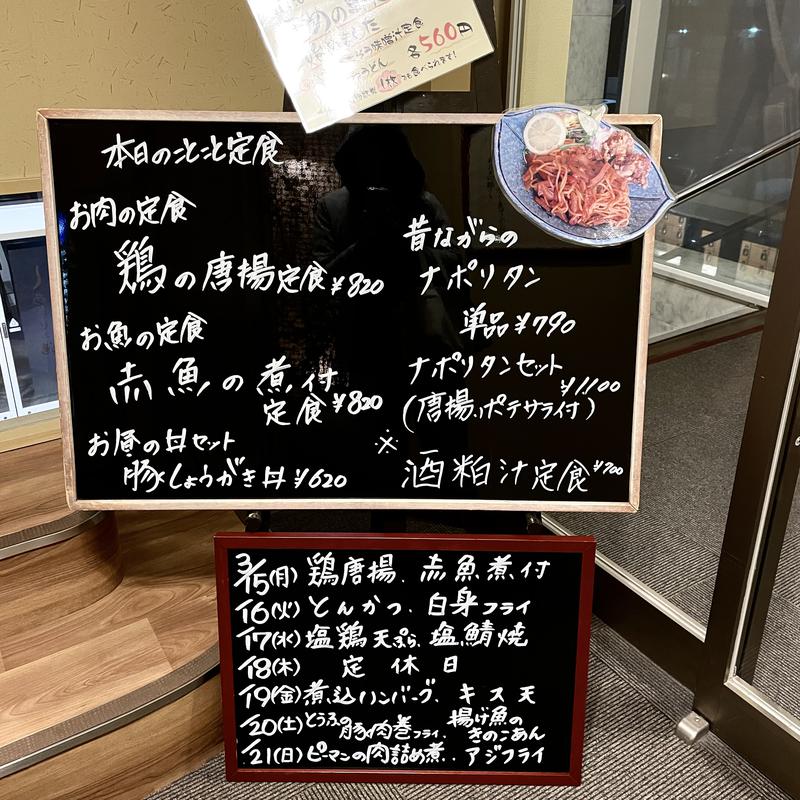 味噌汁定食
うどん 各560円
1枚つも食べられます!
本日のことこと定食
お肉の定食
鶏の唐揚定食 ¥820
お魚の定食
赤魚の煮付
定食 ¥820
お昼の丼セット
豚しょうがき丼 ¥620
昔ながらの
ナポリタン
単品 ¥790
ナポリタンセット
¥1,100
(唐揚、ポテサラ付)
※
酒粕汁定食 ¥700
3/15(月) 鶏唐揚、赤魚煮付
16(火) とんかつ、白身フライ
17(水) 塩鶏天ぷら、塩鯖焼
18(木) 定休日
19(金) 煮込ハンバーグ、キス天
20(土) とうふの豚肉巻フライ、揚げ魚のきのこあん
21(日) ピーマンの肉詰め煮、アジフライ